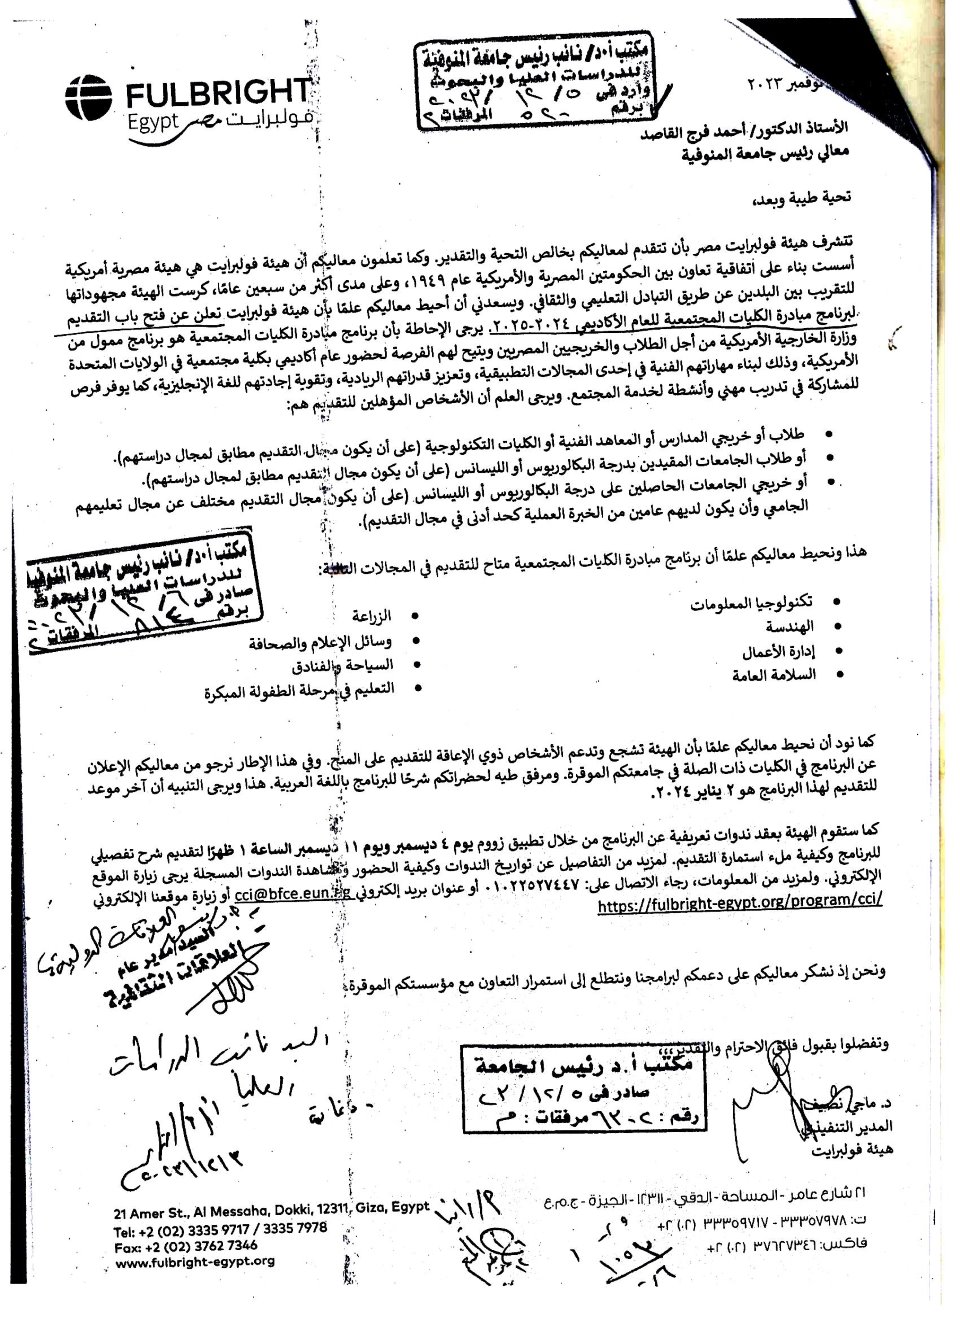 مكتب أ.د/ نائب رئيس جامعة المنوفية
للدراسات العليا والبحوث
وارد فى ٥ / ١٢ / ٢٠٢٣
برقم ٥٢٠ المرفقات ٢
FULBRIGHT
Egypt فولبرايت مصر
نوفمبر ٢٠٢٣
الأستاذ الدكتور/ أحمد فرج القاصد
معالي رئيس جامعة المنوفية
تحية طيبة وبعد،
تتشرف هيئة فولبرايت مصر بأن تتقدم لمعاليكم بخالص التحية والتقدير. وكما تعلمون معاليكم أن هيئة فولبرايت هي هيئة مصرية أمريكية
أسست بناء على اتفاقية تعاون بين الحكومتين المصرية والأمريكية عام ١٩٤٩، وعلى مدى أكثر من سبعين عامًا، كرست الهيئة مجهوداتها
للتقريب بين البلدين عن طريق التبادل التعليمي والثقافي. ويسعدني أن أحيط معاليكم علمًا بأن هيئة فولبرايت تعلن عن فتح باب التقديم
لبرنامج مبادرة الكليات المجتمعية للعام الأكاديمي ٢٠٢٤-٢٠٢٥. يرجى الإحاطة بأن برنامج مبادرة الكليات المجتمعية هو برنامج ممول من
وزارة الخارجية الأمريكية من أجل الطلاب والخريجيين المصريين ويتيح لهم الفرصة لحضور عام أكاديمي بكلية مجتمعية في الولايات المتحدة
الأمريكية، وذلك لبناء مهاراتهم الفنية في إحدى المجالات التطبيقية، وتعزيز قدراتهم الريادية، وتقوية إجادتهم للغة الإنجليزية، كما يوفر فرص
للمشاركة في تدريب مهني وأنشطة لخدمة المجتمع. ويرجى العلم أن الأشخاص المؤهلين للتقديم هم:
• طلاب أو خريجي المدارس أو المعاهد الفنية أو الكليات التكنولوجية (على أن يكون مجال التقديم مطابق لمجال دراستهم).
• أو طلاب الجامعات المقيدين بدرجة البكالوريوس أو الليسانس (على أن يكون مجال التقديم مطابق لمجال دراستهم).
• أو خريجي الجامعات الحاصلين على درجة البكالوريوس أو الليسانس (على أن يكون مجال التقديم مختلف عن مجال تعليمهم
الجامعي وأن يكون لديهم عامين من الخبرة العملية كحد أدنى في مجال التقديم).
مكتب أ.د/ نائب رئيس جامعة المنوفية
للدراسات العليا والبحوث
صادر فى ٦ / ١٢ / ٢٠٢٣
برقم ٨١٤٠ المرفقات ٢
هذا ونحيط معاليكم علمًا أن برنامج مبادرة الكليات المجتمعية متاح للتقديم في المجالات التالية:
• تكنولوجيا المعلومات
• الهندسة
• إدارة الأعمال
• السلامة العامة
• الزراعة
• وسائل الإعلام والصحافة
• السياحة والفنادق
• التعليم في مرحلة الطفولة المبكرة
كما نود أن نحيط معاليكم علمًا بأن الهيئة تشجع وتدعم الأشخاص ذوي الإعاقة للتقديم على المنح. وفي هذا الإطار نرجو من معاليكم الإعلان
عن البرنامج في الكليات ذات الصلة في جامعتكم الموقرة. ومرفق طيه لحضراتكم شرحًا للبرنامج باللغة العربية. هذا ويرجى التنبيه أن آخر موعد
للتقديم لهذا البرنامج هو ٢ يناير ٢٠٢٤.
كما ستقوم الهيئة بعقد ندوات تعريفية عن البرنامج من خلال تطبيق زووم يوم ٤ ديسمبر ويوم ١١ ديسمبر الساعة ١ ظهرًا لتقديم شرح تفصيلي
للبرنامج وكيفية ملء استمارة التقديم. لمزيد من التفاصيل عن تواريخ الندوات وكيفية الحضور ومشاهدة الندوات المسجلة يرجى زيارة الموقع
الإلكتروني. ولمزيد من المعلومات، رجاء الاتصال على: ٠١٠٢٢٥٢٧٤٤٧ أو عنوان بريد إلكتروني cci@bfce.eun.eg أو زيارة موقعنا الإلكتروني
https://fulbright-egypt.org/program/cci/
السيد/ مدير عام
العلاقات الثقافية
ونحن إذ نشكر معاليكم على دعمكم لبرامجنا ونتطلع إلى استمرار التعاون مع مؤسستكم الموقرة.
السيد نائب الدراسات
العليا
وتفضلوا بقبول فائق الاحترام والتقدير،،،
مكتب أ.د رئيس الجامعة
صادر فى ٥ / ١٢ / ٢٣
رقم : ٦٣٠٢ مرفقات : م
د. ماجي نصيف
المدير التنفيذي
هيئة فولبرايت
21 Amer St., Al Messaha, Dokki, 12311, Giza, Egypt
Tel: +2 (02) 3335 9717 / 3335 7978
Fax: +2 (02) 3762 7346
www.fulbright-egypt.org
٢١ شارع عامر - المساحة - الدقي - ١٢٣١١ - الجيزة - ج.م.ع
ت: ٣٣٣٥٧٩٧٨ - ٣٣٣٥٩٧١٧ (٠٢) ٢+
فاكس: ٣٧٦٢٧٣٤٦ (٠٢) ٢+